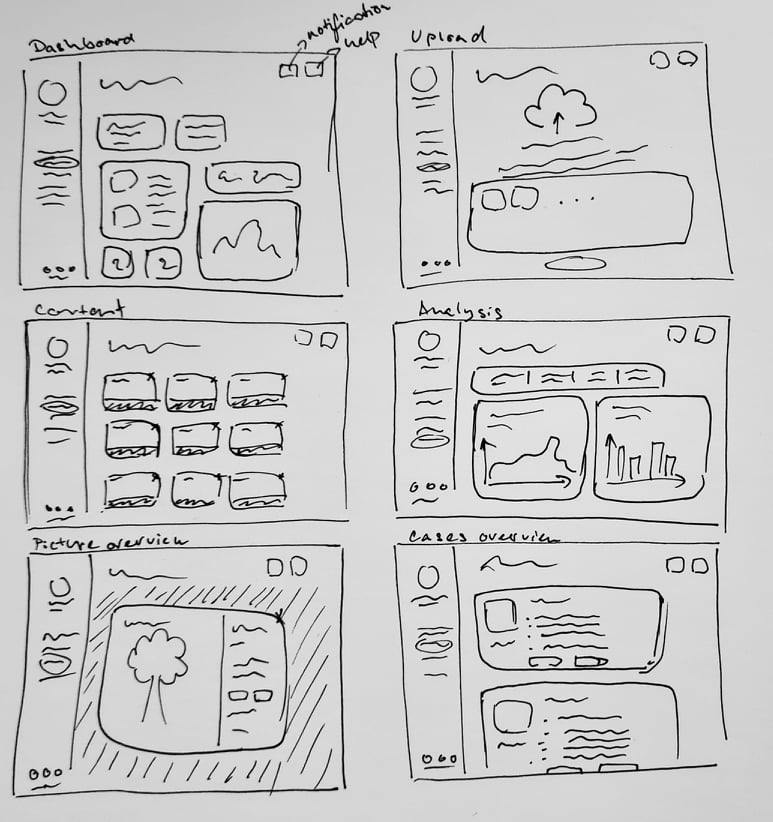 Dashboard
notification
help
Upload
Content
Analysis
Picture overview
Cases overview